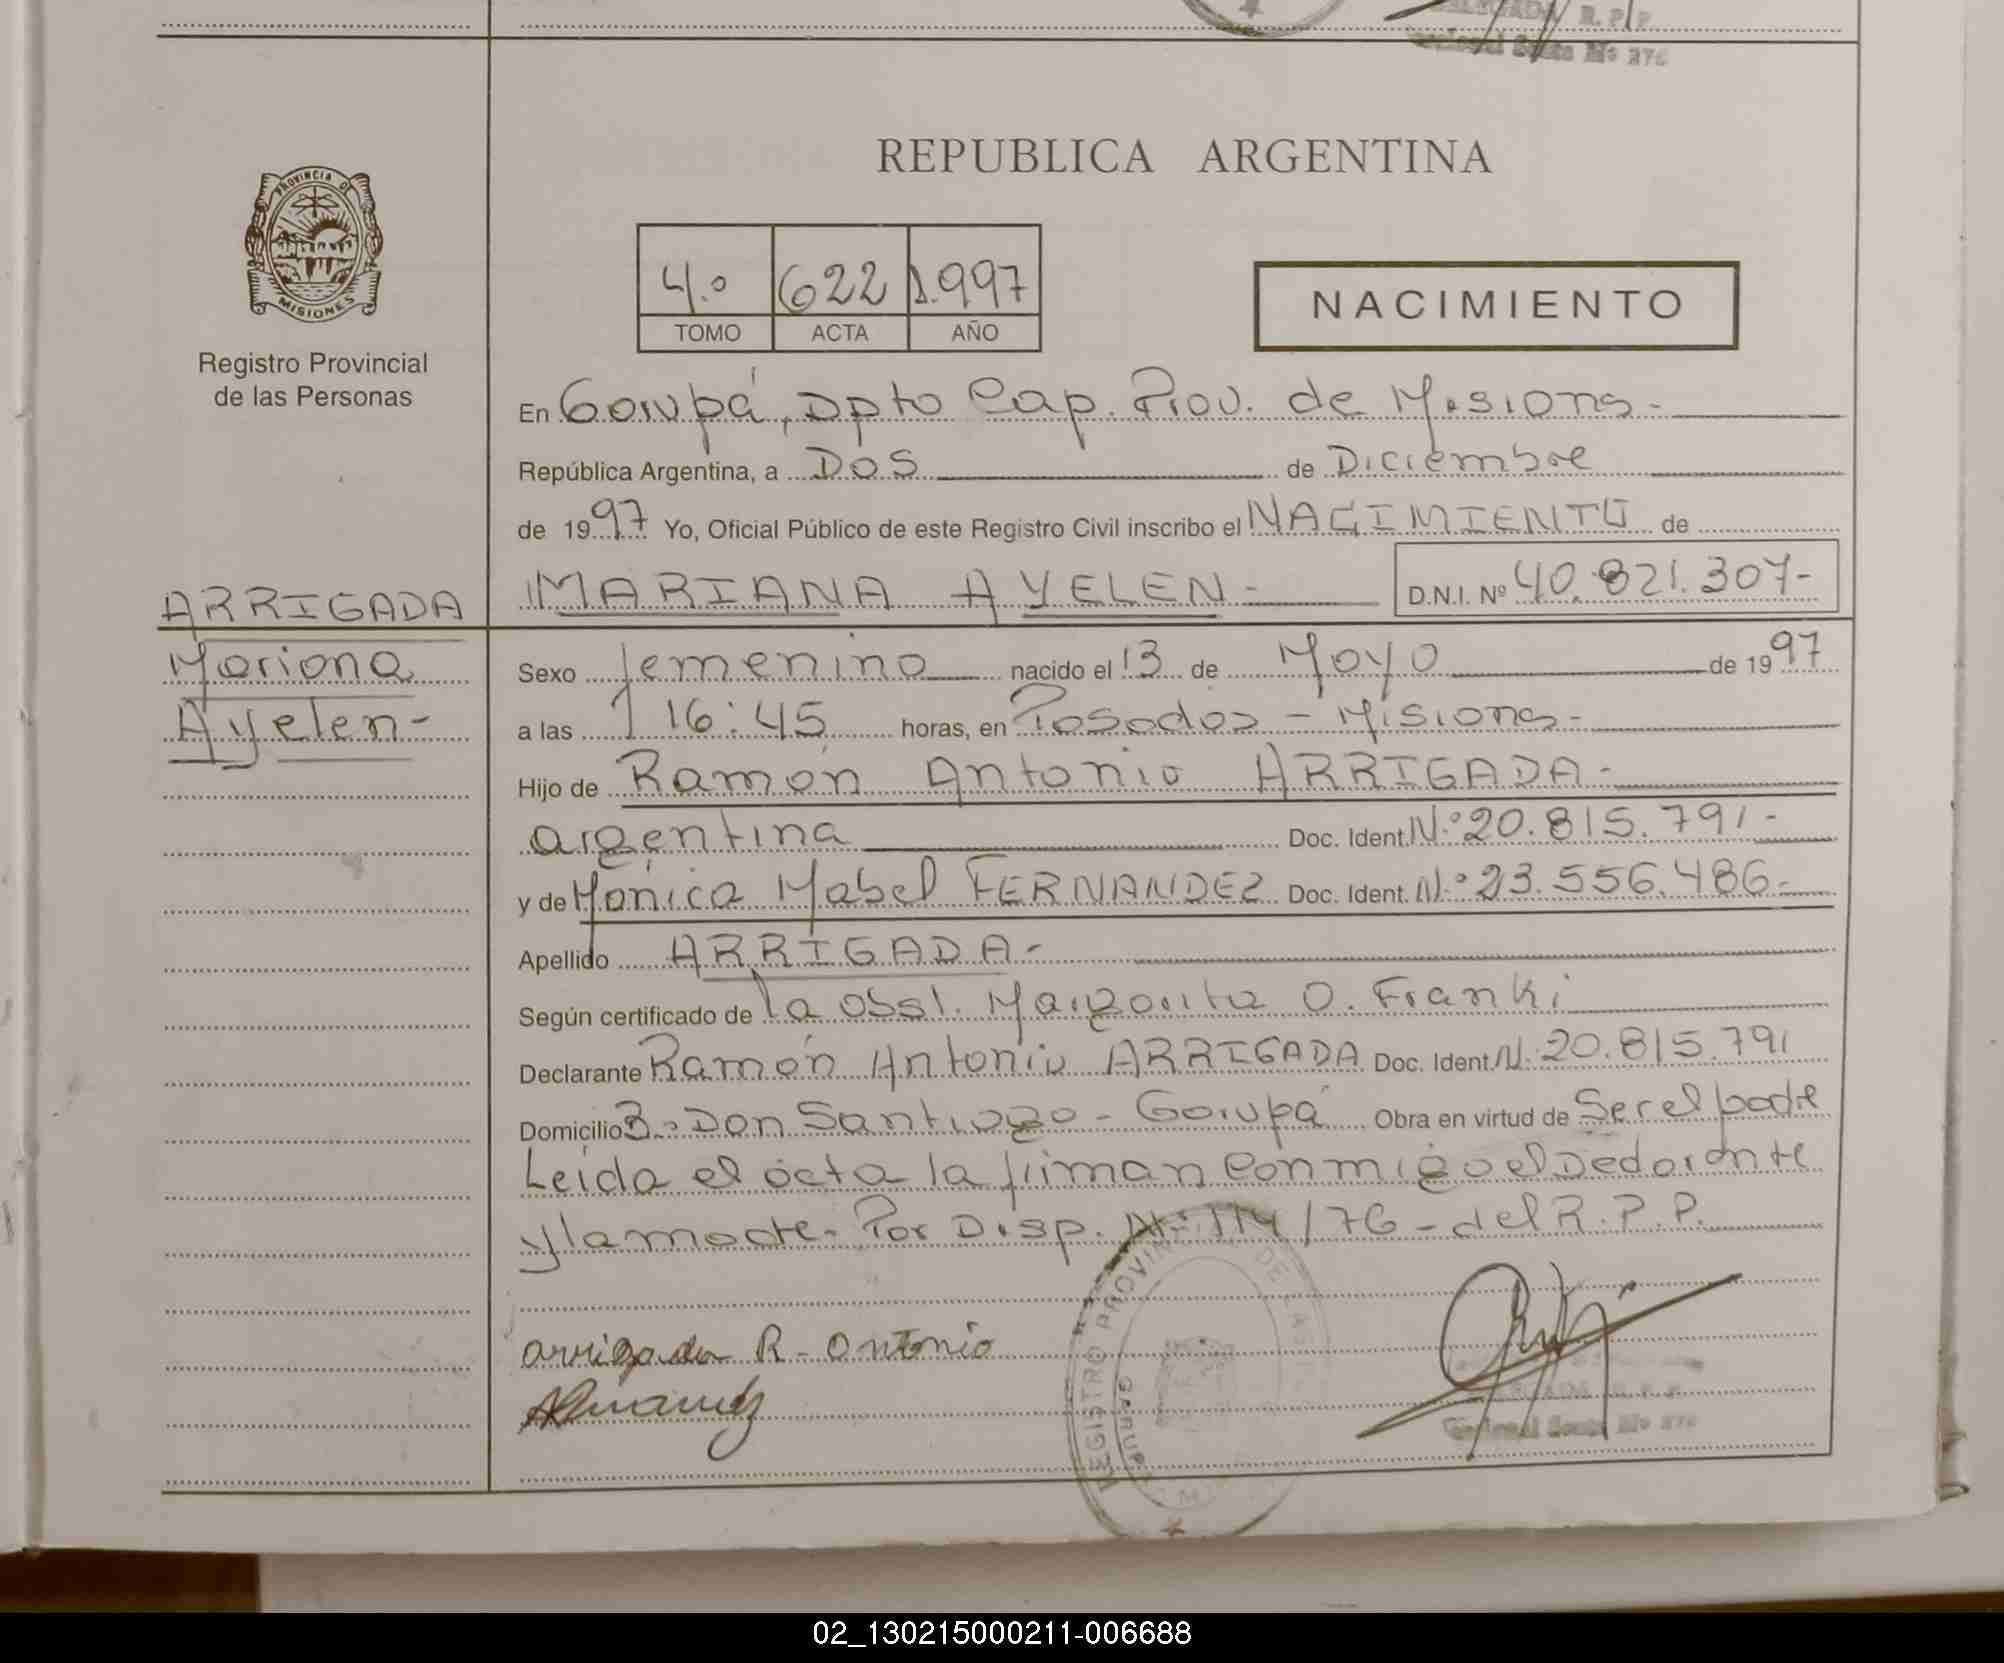 R. P. P.
REPUBLICA ARGENTINA
PROVINCIA DE
MISIONES
Registro Provincial
de las Personas
4.º 622 1.997
TOMO ACTA AÑO
NACIMIENTO
En Garupá, Dpto Cap. Prov. de Misiones.-
República Argentina, a Dos de Diciembre
de 1997 Yo, Oficial Público de este Registro Civil inscribo el NACIMIENTO de
ARRIGADA
Mariana
Ayelen-
MARIANA AYELEN- D.N.I. Nº 40.821.307-
Sexo femenino nacido el 13 de Mayo de 1997
a las 16:45 horas, en Posadas - Misiones-
Hijo de Ramón Antonio ARRIGADA-
argentina Doc. Ident. N.º 20.815.791-
y de Mónica Mabel FERNANDEZ Doc. Ident. N.º 23.556.486-
Apellido ARRIGADA-
Según certificado de la obst. Margarita O. Franki
Declarante Ramón Antonio ARRIGADA Doc. Ident. N. 20.815.791
Domicilio B. Don Santiago - Garupá Obra en virtud de Ser el padre
Leida el acta la firman conmigo el Declarante
y la madre. Por Disp. Nº 114/76 - del R.P.P.
arrigada R. Antonio
REGISTRO PROVIN DE LAS
GARUPA
02_130215000211-006688